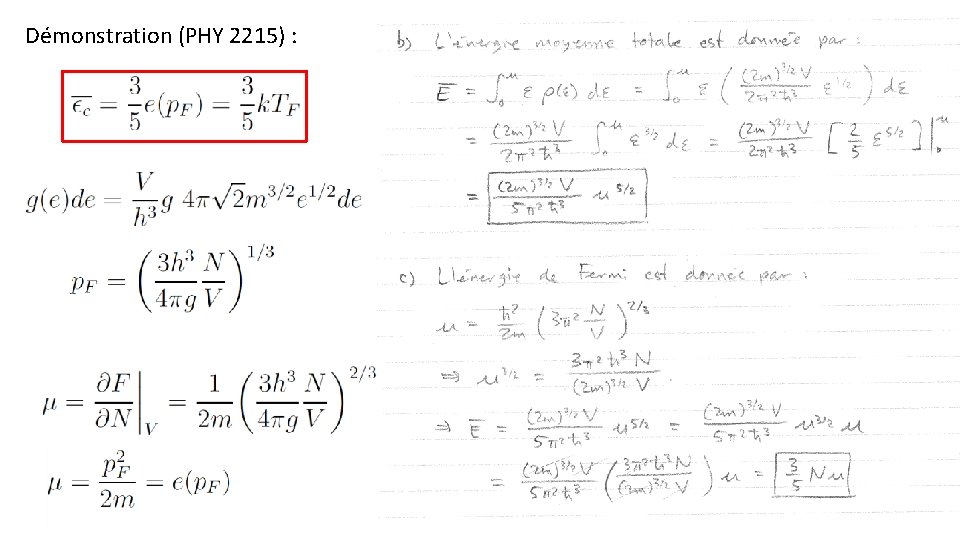 Démonstration (PHY 2215) :
\overline{\epsilon_c} = \frac{3}{5} e(p_F) = \frac{3}{5} kT_F
g(e)de = \frac{V}{h^3} g 4\pi\sqrt{2}m^{3/2}e^{1/2}de
p_F = \left(\frac{3h^3}{4\pi g}\frac{N}{V}\right)^{1/3}
\mu = \left.\frac{\partial F}{\partial N}\right|_V = \frac{1}{2m}\left(\frac{3h^3}{4\pi g}\frac{N}{V}\right)^{2/3}
\mu = \frac{p_F^2}{2m} = e(p_F)
b) L'énergie moyenne totale est donnée par :
\overline{E} = \int_0^u ε ρ(ε) dε = \int_0^u ε \left(\frac{(2m)^{3/2} V}{2π^2 ħ^3} ε^{1/2}\right) dε
= \frac{(2m)^{3/2} V}{2π^2 ħ^3} \int_0^u ε^{3/2} dε = \frac{(2m)^{3/2} V}{2π^2 ħ^3} \left[\frac{2}{5} ε^{5/2}\right]\Big|_0^u
= \frac{(2m)^{3/2} V}{5π^2 ħ^3} u^{5/2}
c) L'énergie de Fermi est donnée par :
u = \frac{ħ^2}{2m} \left(3π^2 \frac{N}{V}\right)^{2/3}
⇒ u^{3/2} = \frac{3π^2 ħ^3 N}{(2m)^{3/2} V}.
⇒ \overline{E} = \frac{(2m)^{3/2} V}{5π^2 ħ^3} u^{5/2} = \frac{(2m)^{3/2} V}{5π^2 ħ^3} u^{3/2} u
= \frac{(2m)^{3/2} V}{5π^2 ħ^3} \left(\frac{3π^2 ħ^3 N}{(2m)^{3/2} V}\right) u = \frac{3}{5} N u